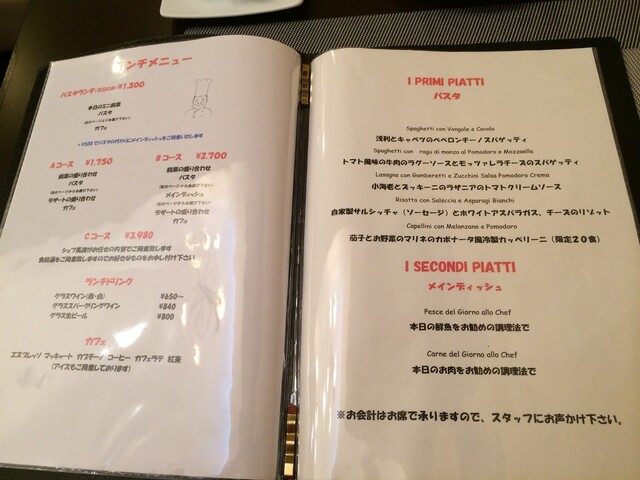 ランチメニュー
パスタランチ(平日のみ)¥1,300
本日のミニ前菜
パスタ
(右のページよりお選び下さい)
カフェ
+¥500でパスタの代わりにメインディッシュをご用意いたします
Aコース ¥1,750
前菜の盛り合わせ
パスタ
(右のページからお選び下さい)
デザートの盛り合わせ
カフェ
Bコース ¥2,700
前菜の盛り合わせ
パスタ
(右のページからお選び下さい)
メインディッシュ
(右のページからお選び下さい)
デザートの盛り合わせ
カフェ
Cコース ¥3,980
シェフ馬殿がお任せの内容でご用意致します
ランチドリンク
グラスワイン(赤・白) ¥650~
グラススパークリングワイン ¥840
グラス生ビール ¥800
カフェ
エスプレッソ マッキャート カプチーノ コーヒー カフェラテ 紅茶
(アイスもご用意しております)
I PRIMI PIATTI
パスタ
Spaghetti con Vongole e Cavolo
浅利とキャベツのペペロンチーノスパゲッティ
Spaghetti con ragu di manzo al Pomodoro e Mozzarella
トマト風味の牛肉のラグーソースとモッツァレラチーズのスパゲッティ
Lasagna con Gamberetti e Zucchini Salsa Pomodoro Crema
小海老とズッキーニのラザニアのトマトクリームソース
Risotto con Salsiccia e Asparagi Bianchi
自家製サルシッチャ(ソーセージ)とホワイトアスパラガス、チーズのリゾット
Capellini con Melanzane e Pomodoro
茄子とお野菜のマリネのカポナータ風冷製カッペリーニ(限定20食)
I SECONDI PIATTI
メインディッシュ
Pesce del Giorno allo Chef
本日の鮮魚をお勧めの調理法で
Carne del Giorno allo Chef
本日のお肉をお勧めの調理法で
※お会計はお席で承りますので、スタッフにお声かけ下さい。